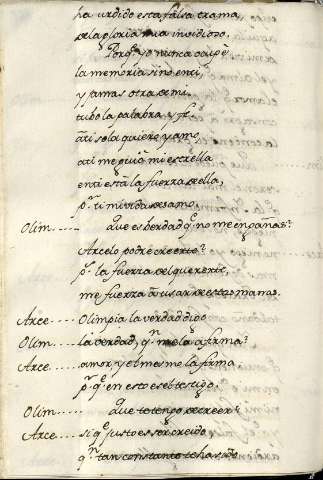 ha urdido esta falsa trama,
de la gloria mia invidioso,
Porq̃ yo nunca ocupè
la memoria sino en ti,
y jamas otra de mi
tubo la palabra y fe.
à ti sola quiero y amo,
a ti me guió mi estrella
en ti està la fuerza della,
pr ti mi vida desamo,
Olim..... que es berdad q̃ no me engañas?
Arcelo podrè creerte?
pr la fuerza del quererte,
me fuerza à usar destas mañas.
Arce..... Olimpia la verdad digo
Olim..... la verdad, qn me la afirma?
Arce..... amor, y el mesmo la firma
pr q̃ en esto es el testigo.
Olim..... que te tengo de creer?
Arce..... si q̃ justo es ser creido
qn tan constante te ha sido